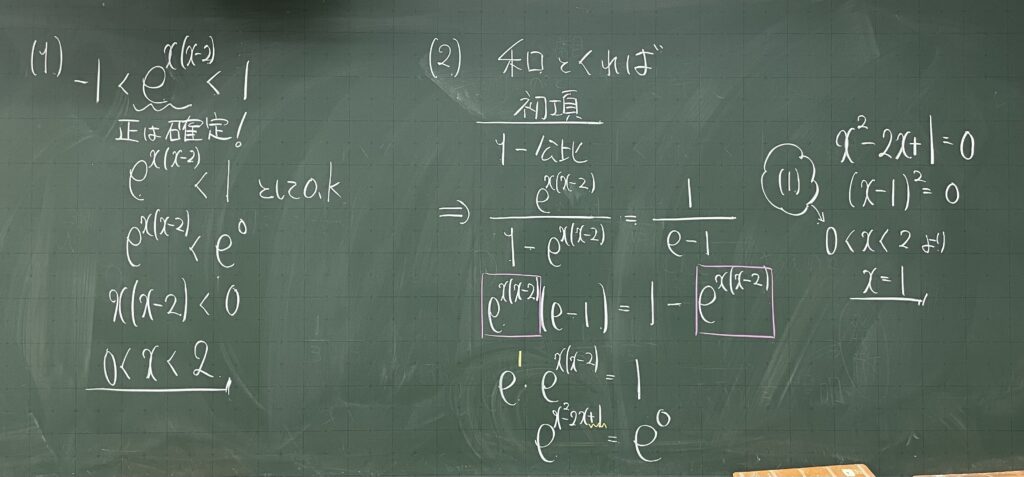 (1) -1 < e^{x(x-2)} < 1
正は確定!
e^{x(x-2)} < 1 としてo.k
e^{x(x-2)} < e^0
x(x-2) < 0
0 < x < 2
(2) 和とくれば
初項
1-公比
⇒ e^{x(x-2)} / (1 - e^{x(x-2)}) = 1 / (e-1)
e^{x(x-2)}(e-1) = 1 - e^{x(x-2)}
e^1・e^{x(x-2)} = 1
e^{x^2-2x+1} = e^0
x^2-2x+1=0
(x-1)^2=0
(1)
0<x<2 より
x=1